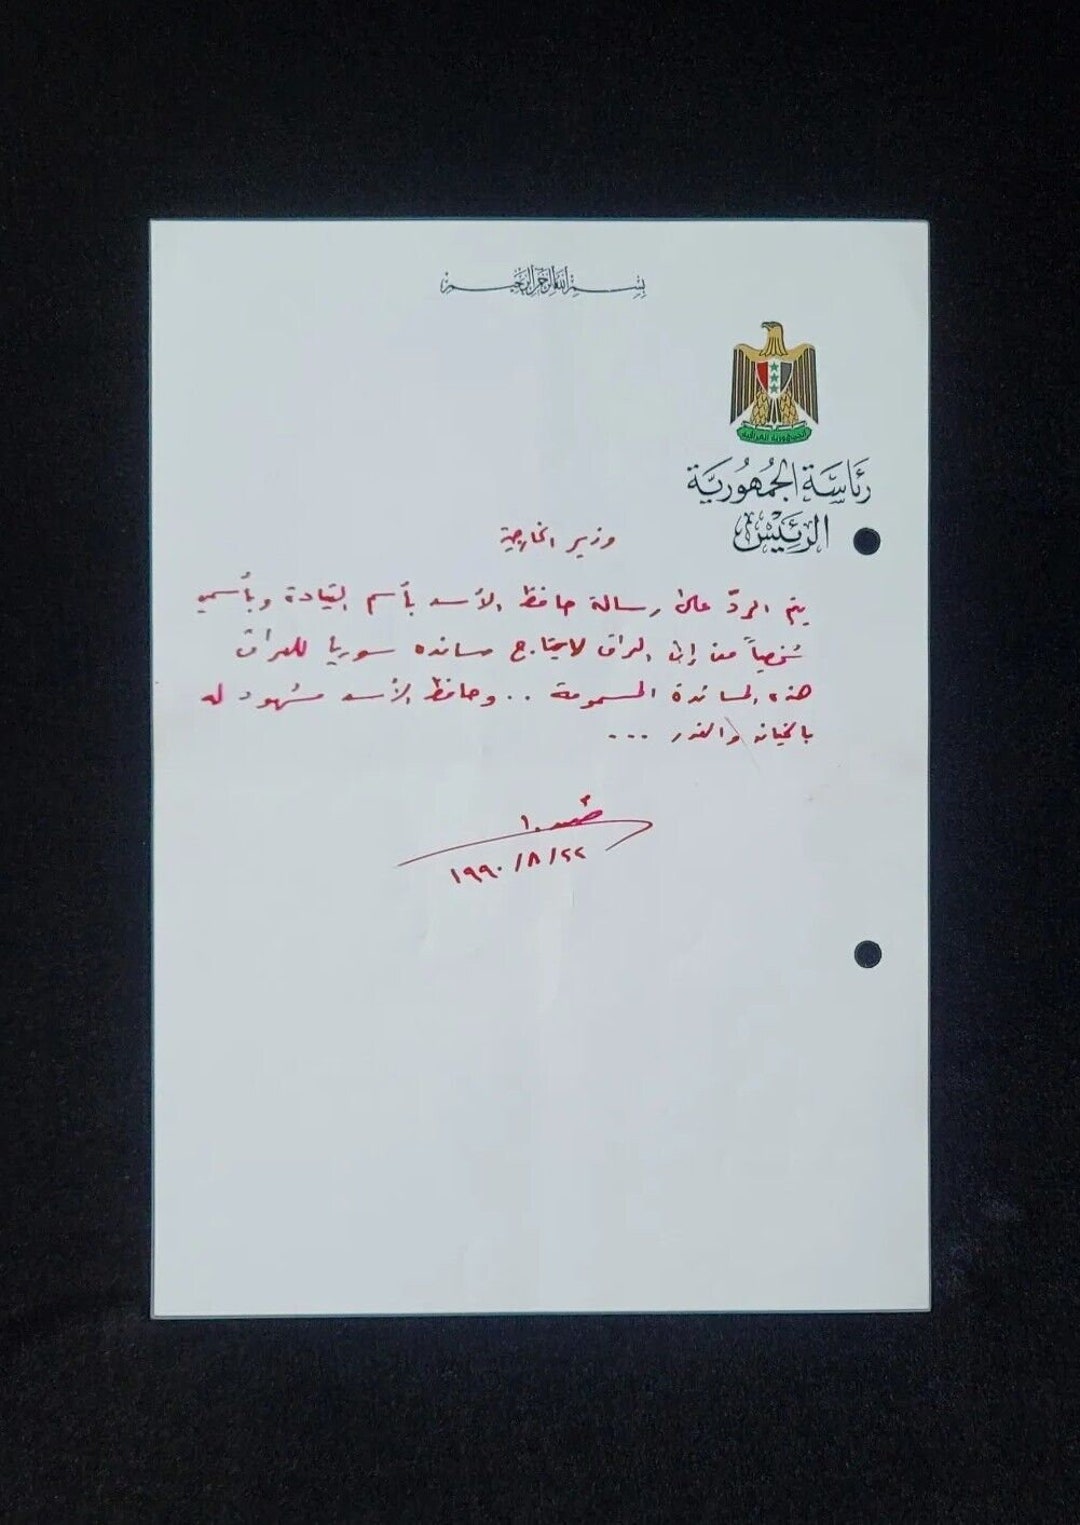 بسم الله الرحمن الرحيم
الجمهورية العراقية
رئاسة الجمهورية
الرئيس
وزير الخارجية
يتم الردّ على رسالة حافظ الأسد بأسم القيادة وبأسمي
شخصياً من إن العراق لا يحتاج مسانده سوريا للعراق
هذه المساندة المسمومة .. وحافظ الأسد مشهود له
بالخيانه والغدر ...
١٩٩٠/٨/٢٢